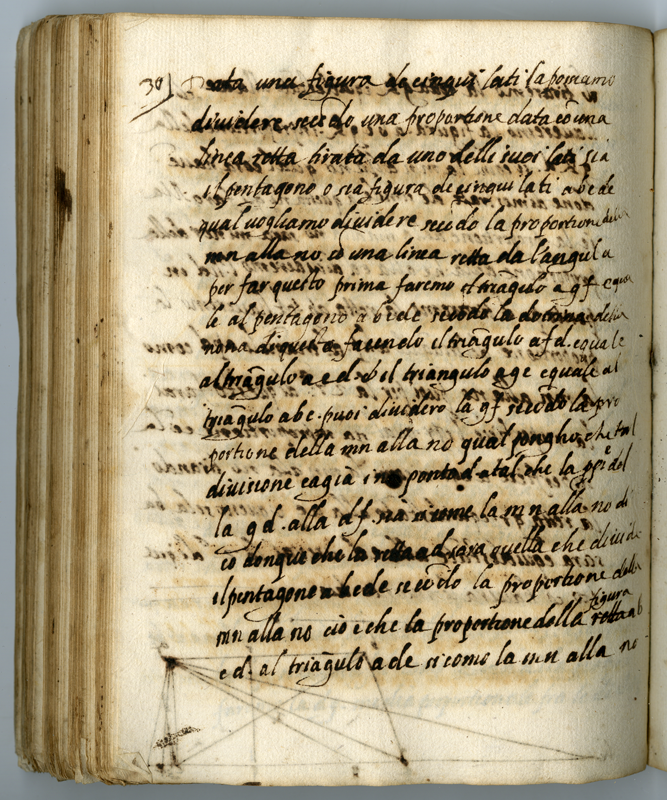 30) Data una figura de cinqui lati la posiamo
dividere secōdo una proportione data cō una
linea retta tirata da uno delli suoi lati sia
il pentagono o sia figura de cinqui lati abcde
qual vogliamo dividere secōdo la proportione della
mn alla no cō una linea retta da l'angulo a
per far questo prima faremo el triāgulo agf equa
le al pentagono abcde secōdo la dotrina della
nona di questa facendo il triāgulo afd equale
al triāgulo aed. et il triangulo age equale al
triāgulo abc. puoi dividero la gf secōdo la pro
portione della mn alla no qual pongho che tal
divisione cagia in ponto d tal che la del
la gd. alla df. sia si come la mn alla no di
co donque che la retta ad sara quella che divide
il pentagono abcde secōdo la proportione della
mn alla no cio è che la proportione della figura retta ab
cd. al triāgulo ade si come la mn alla no